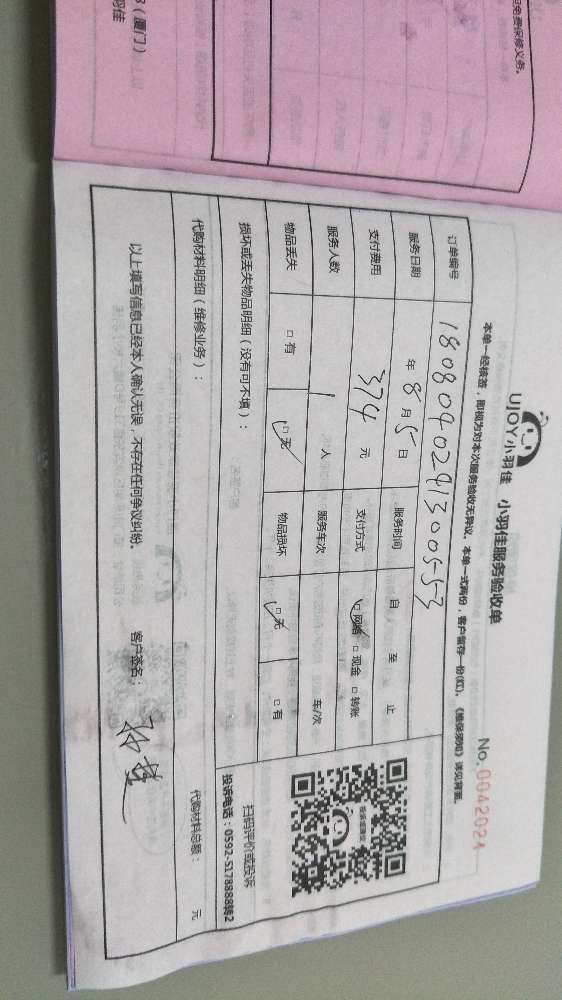 UJOY小羽佳 小羽佳服务验收单
No. 0042024
本单一经核签，即视为对本次服务验收无异议。本单一式两份，客户留存一份(红)。《维保须知》详见背面。
订单编号
服务日期 年 8 月 5 日 服务时间 自 至 止
支付费用 374 元 支付方式 □网络 □现金 □转账
服务人数 1 人 服务车次 车/次
物品丢失 □有 □无 物品损坏 □无 □有
损坏或丢失物品明细（没有可不填）：
扫码评价或投诉
投诉电话：0592-5178888转2
代购材料明细（维修业务）：
代购材料总额： 元
以上填写信息已经本人确认无误，不存在任何争议纠纷。 客户签名：
（厦门）
羽佳
免费保修义务。